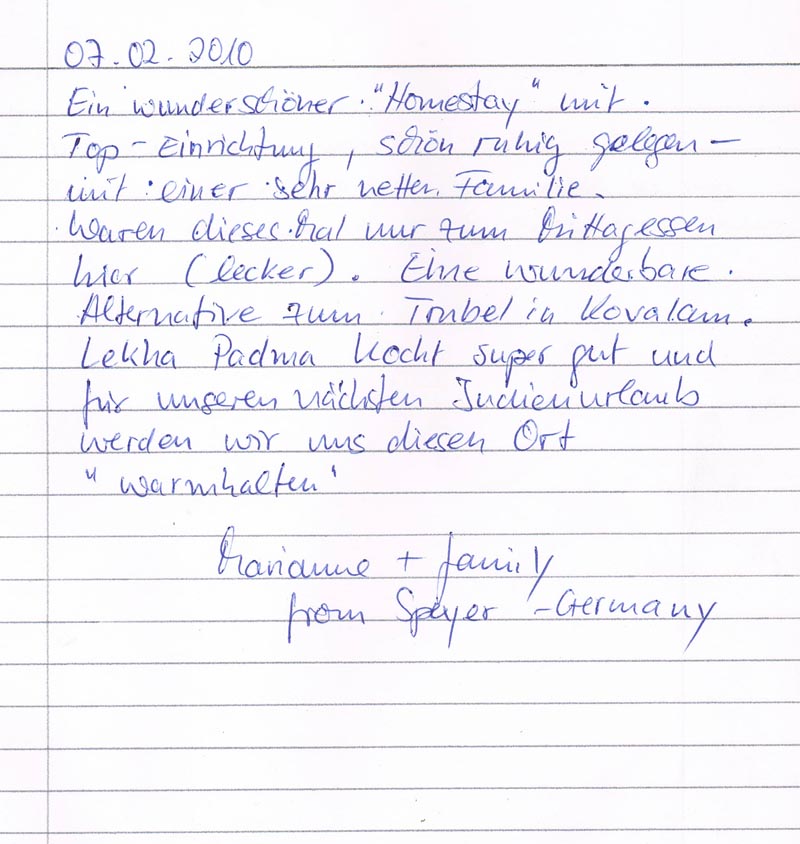 07.02.2010
Ein wunderschöner "Homestay" mit
Top-Einrichtung, schön ruhig gelegen -
mit einer sehr netten Familie.
Waren dieses Mal nur zum Mittagessen
hier (lecker). Eine wunderbare
Alternative zum Trubel in Kovalam.
Lekha Padma kocht super gut und
für unseren nächsten Indienurlaub
werden wir uns diesen Ort
"warmhalten"
Marianne + family
from Speyer - Germany